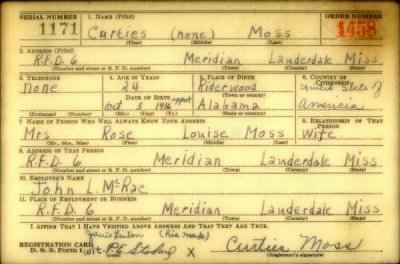 SERIAL NUMBER 1. NAME (Print) ORDER NUMBER
1171 Curties (none) Moss 1458
(First) (Middle) (Last)
2. ADDRESS (Print)
R.F.D. 6 Meridian Lauderdale Miss
(Number and street or R. F. D. number) (Town) (County) (State)
3. TELEPHONE 4. AGE IN YEARS 5. PLACE OF BIRTH 6. COUNTRY OF CITIZENSHIP
none 24 Riderwood United States of
DATE OF BIRTH (Town or county)
Oct 8 1916 Alabama America
(Exchange) (Number) (Mo.) (Day) (Yr.) (State or country)
7. NAME OF PERSON WHO WILL ALWAYS KNOW YOUR ADDRESS 8. RELATIONSHIP OF THAT PERSON
Mrs Rose Louise Moss Wife
(Mr., Mrs., Miss) (First) (Middle) (Last)
9. ADDRESS OF THAT PERSON
R.F.D. 6 Meridian Lauderdale Miss
(Number and street or R. F. D. number) (Town) (County) (State)
10. EMPLOYER'S NAME
John L. McRae
11. PLACE OF EMPLOYMENT OR BUSINESS
R.F.D. 6 Meridian Lauderdale Miss
(Number and street or R. F. D. number) (Town) (County) (State)
I AFFIRM THAT I HAVE VERIFIED ABOVE ANSWERS AND THAT THEY ARE TRUE.
(His mark)
REGISTRATION CARD
D. S. S. Form 1 X Curties Moss
(Registrant's signature)